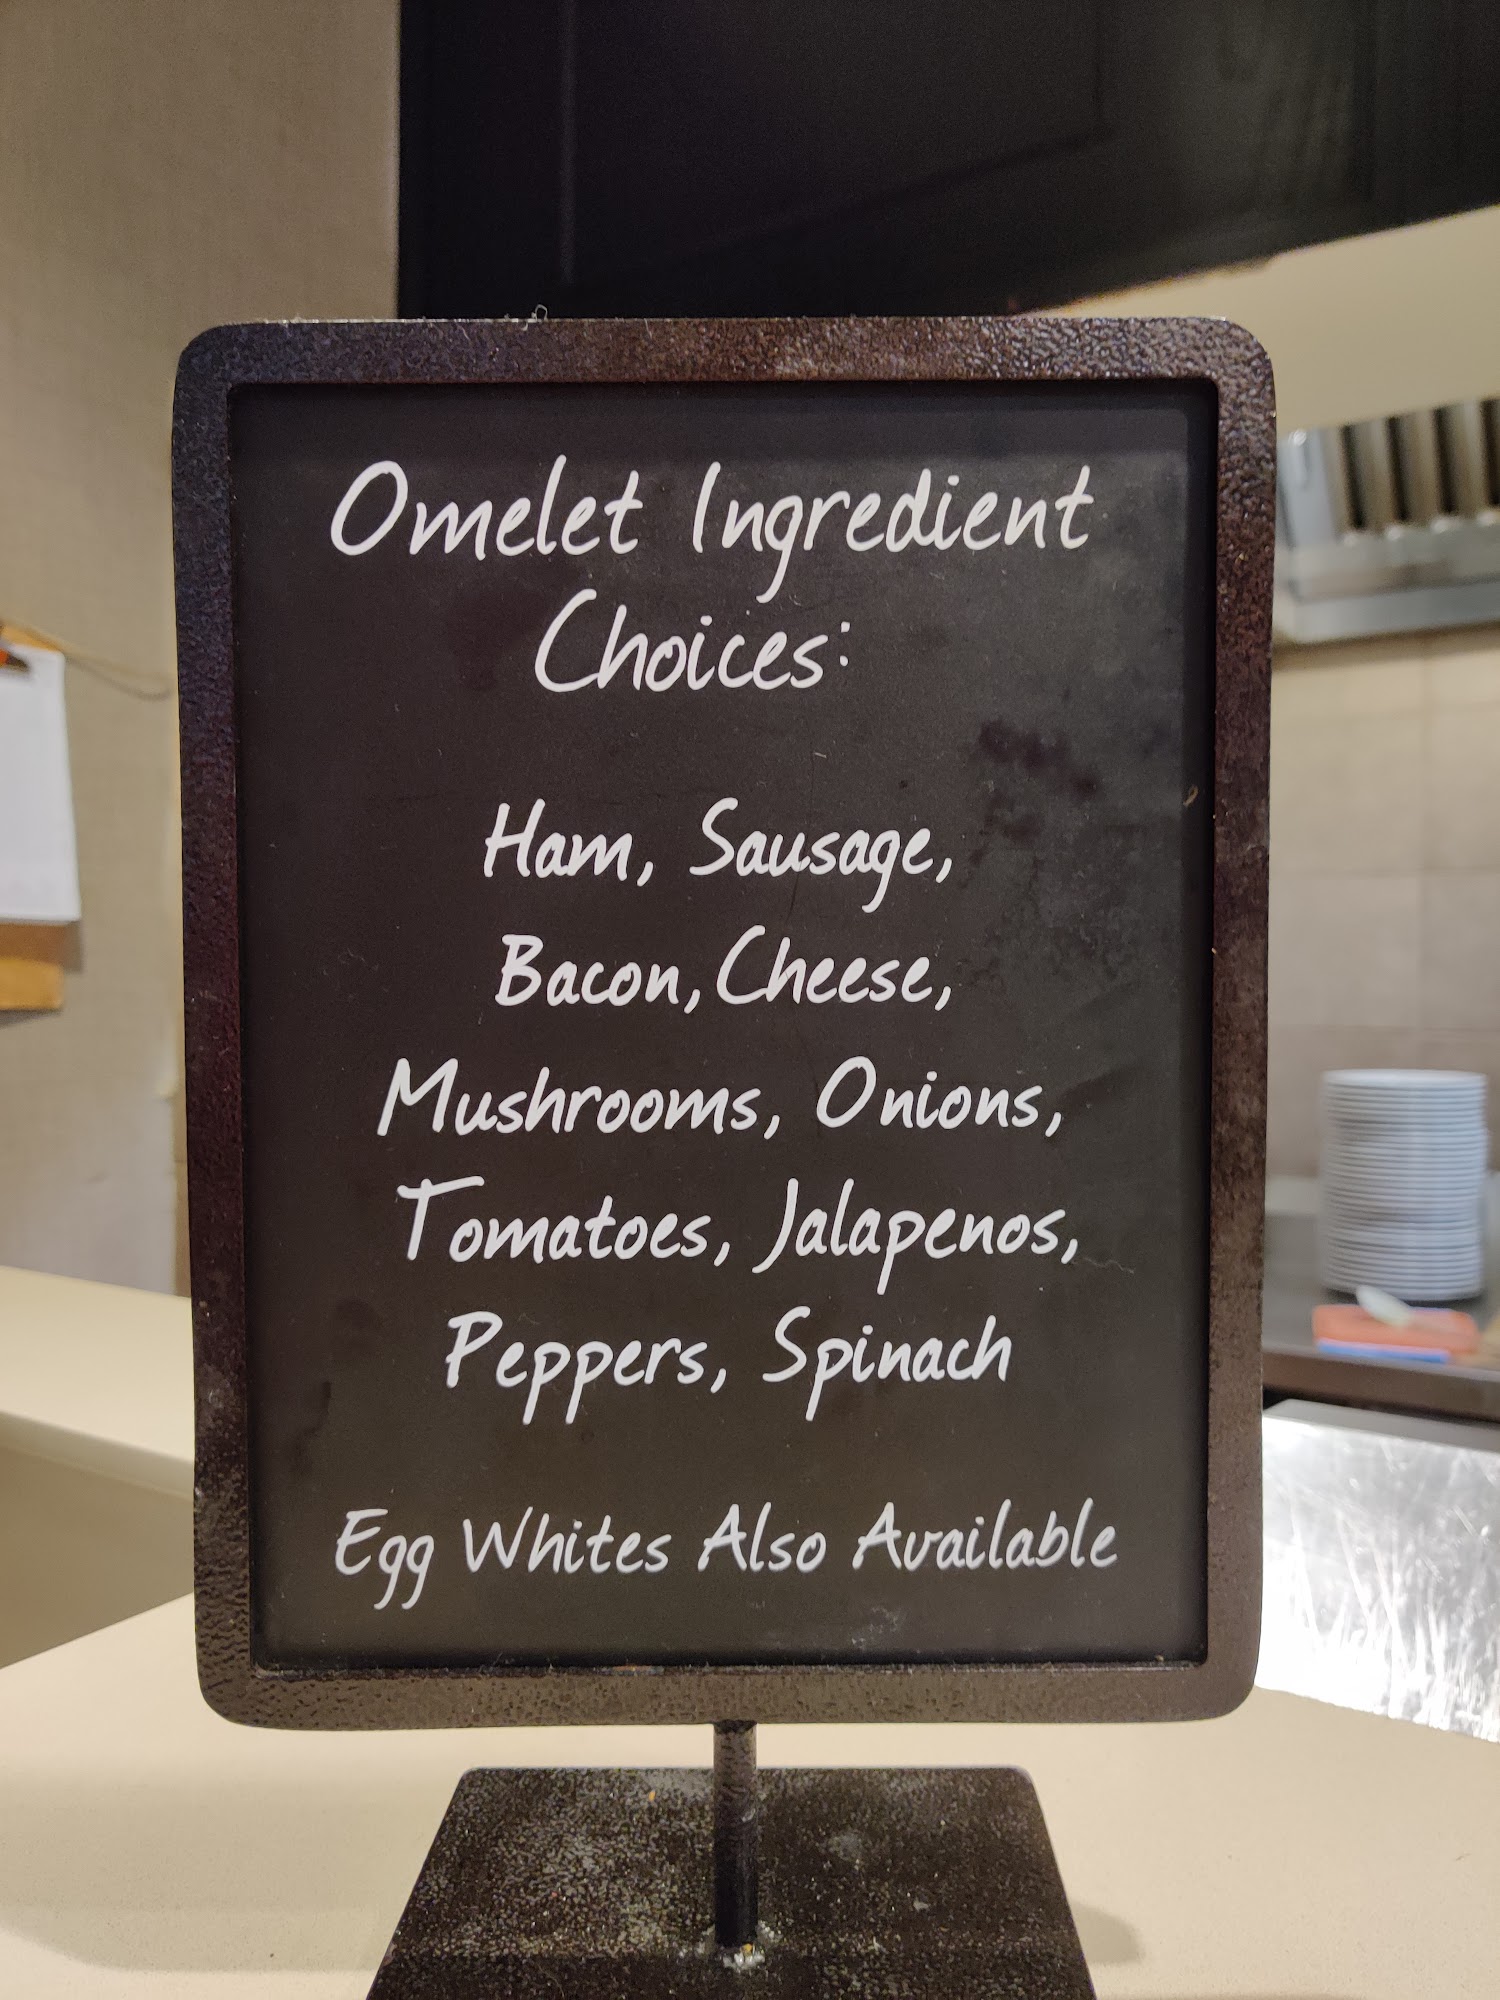 Omelet Ingredient
Choices:
Ham, Sausage,
Bacon, Cheese,
Mushrooms, Onions,
Tomatoes, Jalapenos,
Peppers, Spinach
Egg Whites Also Available